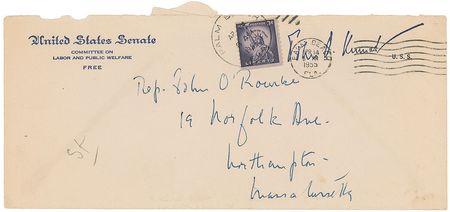 United States Senate
COMMITTEE ON
LABOR AND PUBLIC WELFARE
FREE
PALM
U. S. S.
1955
FLA.
Rep. John O'Rourke
19 Norfolk Ave.
Northampton
Massachusetts